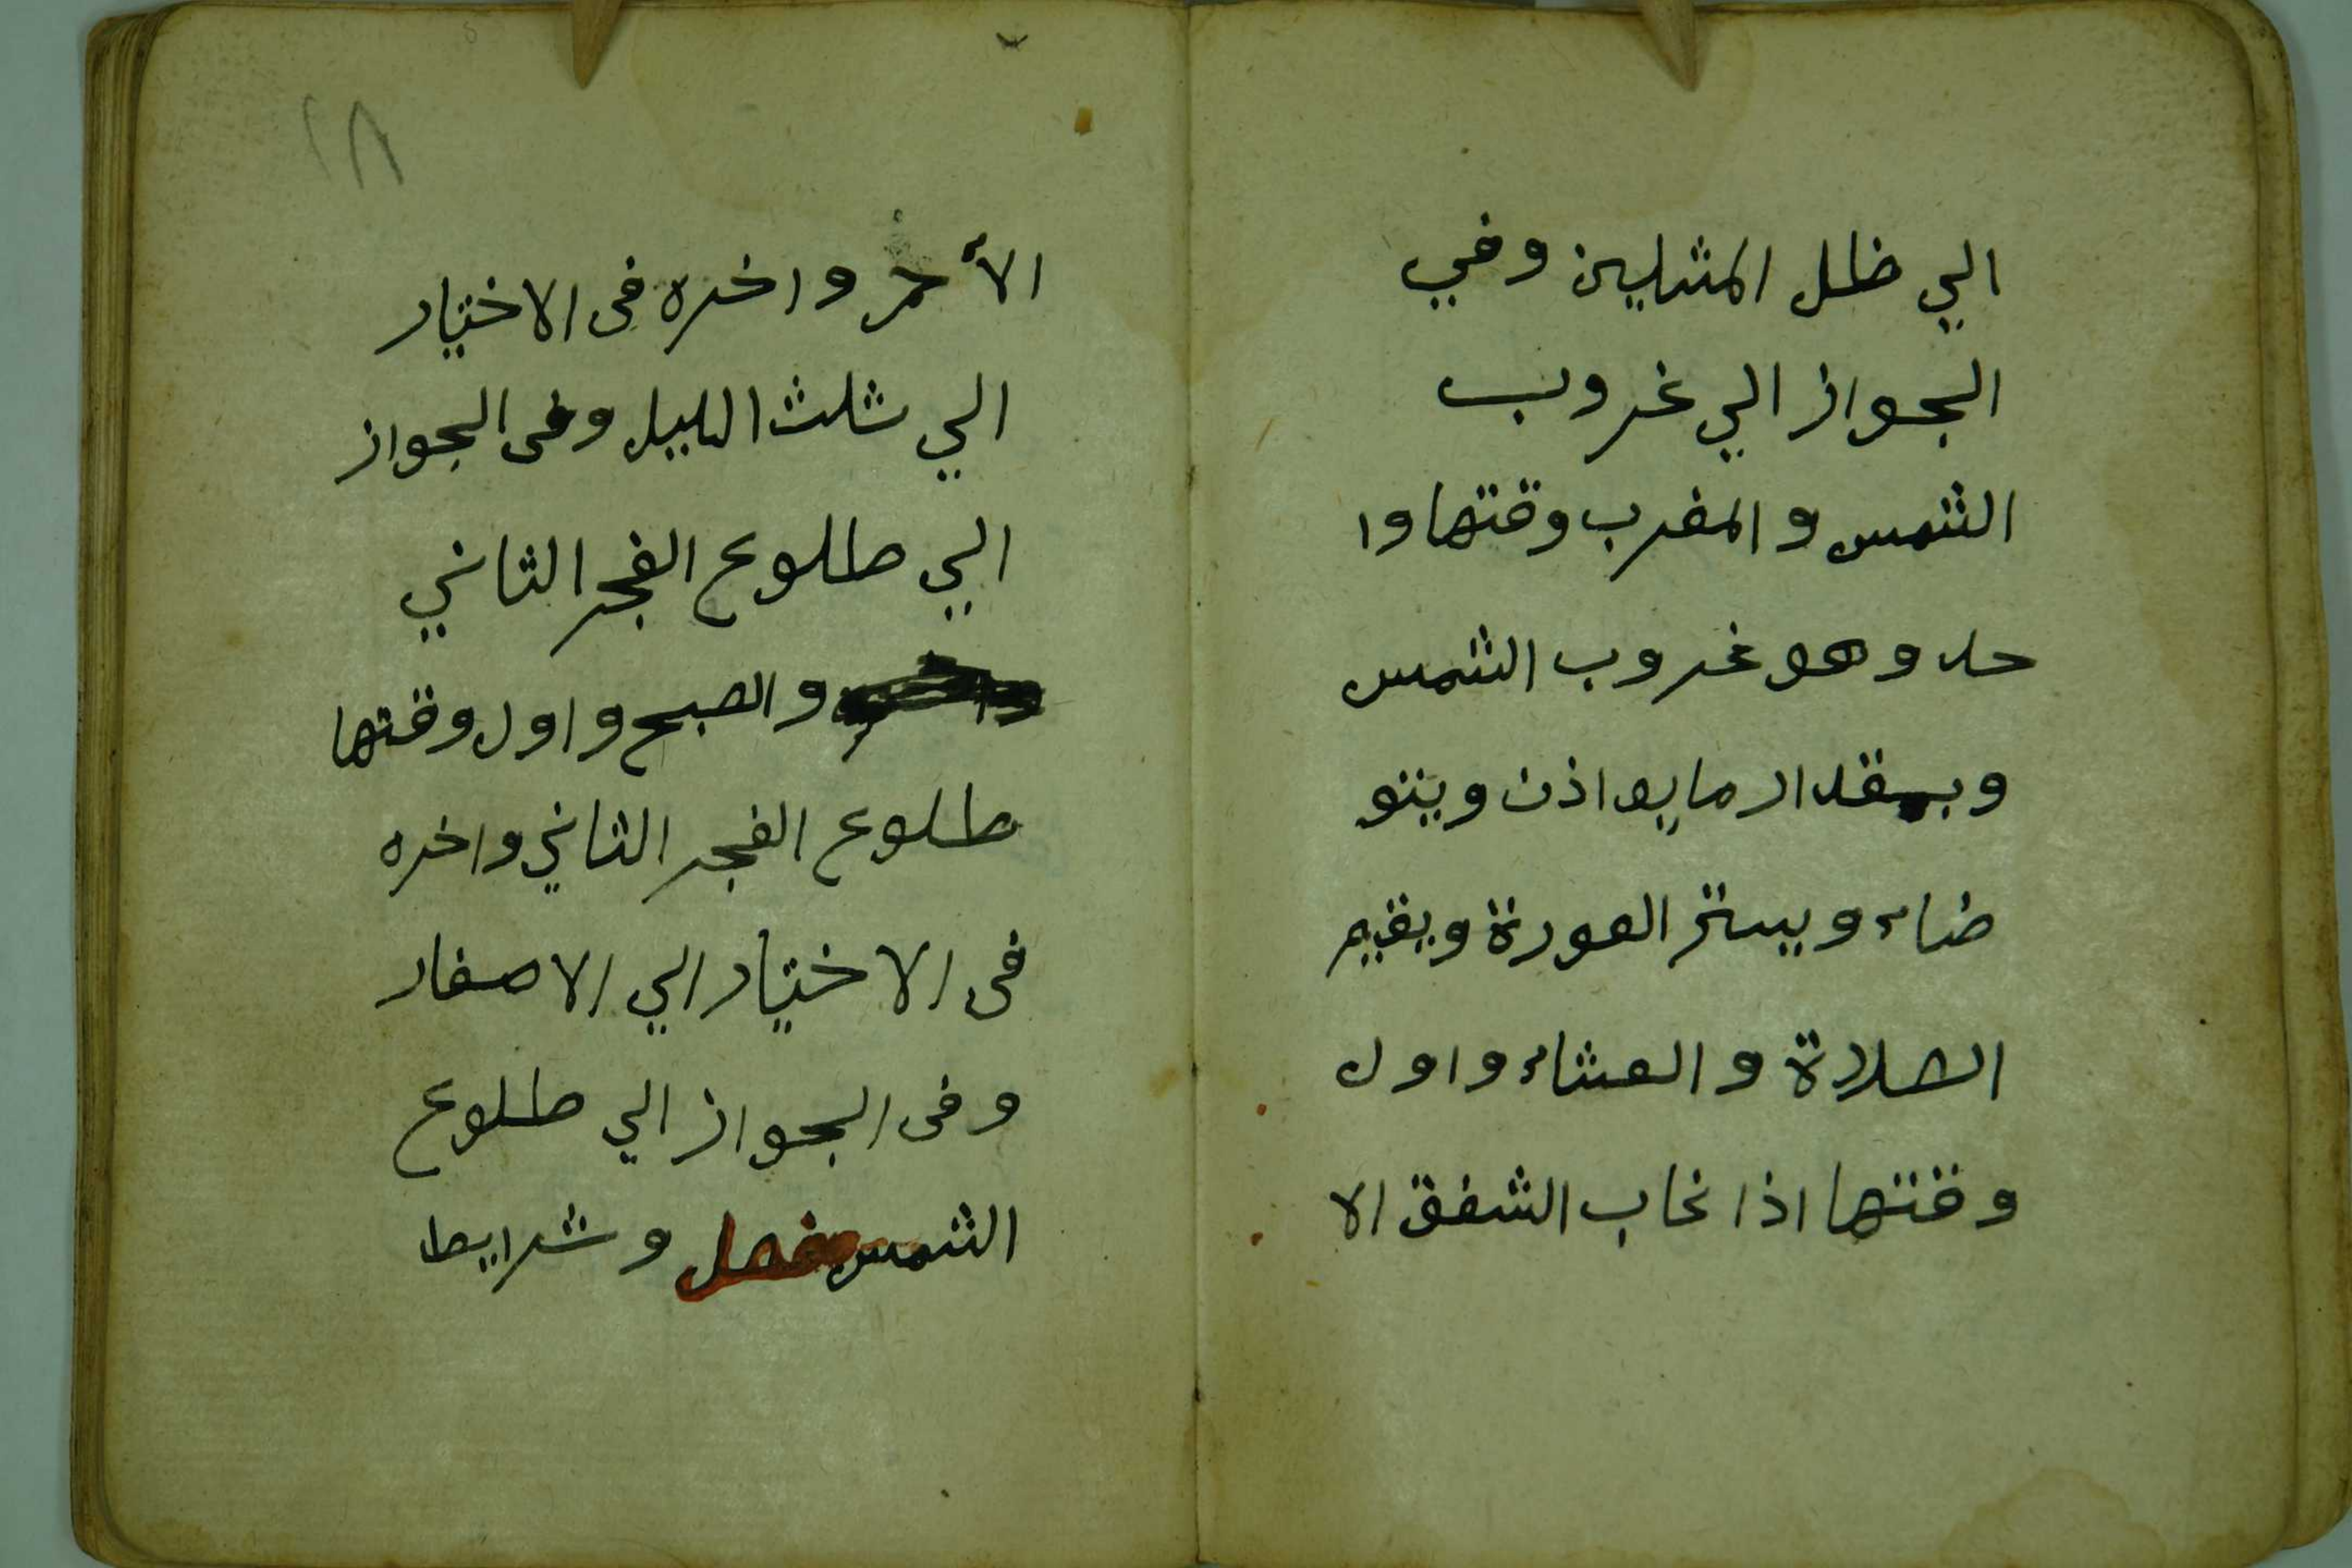 الي ظل المثلين وفي
الجواز الي غروب
الشمس والمغرب وقتها وا
حد وهو غروب الشمس
وبمقدار ما يواذن ويتو
ضاء ويستر العورة ويقيم
الصلاة والعشاء واول
وقتها اذا غاب الشفق الا
١٨
الأحمر واخره فى الاختيار
الي ثلث الليل وفى الجواز
الي طلوع الفجر الثاني
والصبح واول وقتها
طلوع الفجر الثاني واخره
فى الاختيار الي الاصفار
وفى الجواز الي طلوع
الشمس فصل وشرايط